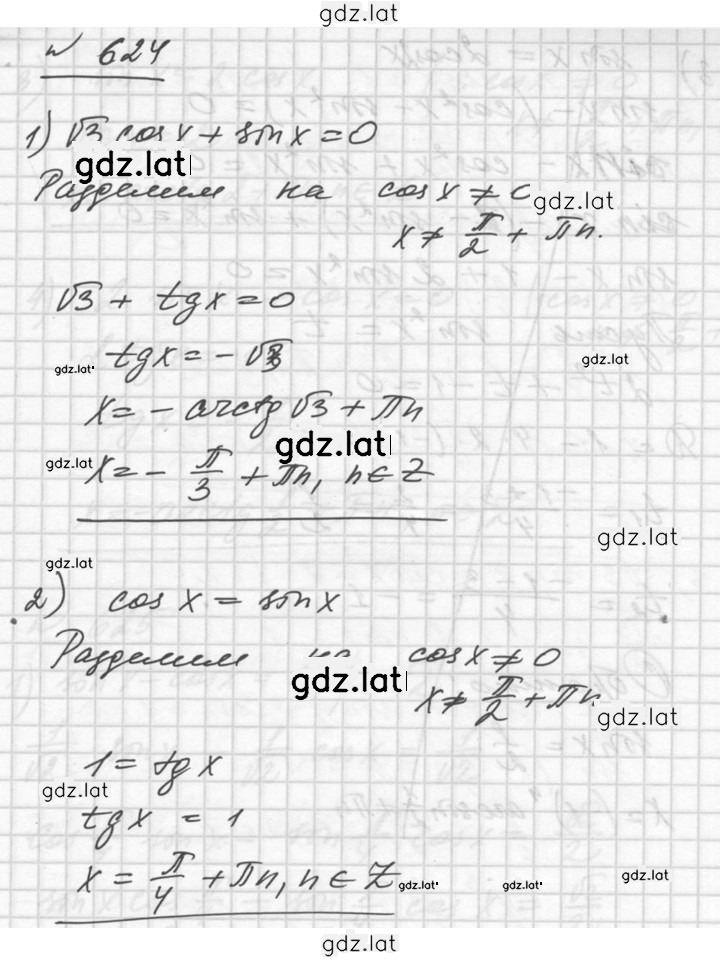 gdz.lat
№ 624
1) √3 cos x + sin x = 0
gdz.lat
Разделим на cos x ≠ 0
gdz.lat
x ≠ π/2 + πn.
√3 + tg x = 0
tg x = - √3
gdz.lat
gdz.lat
x = - arctg √3 + πn
gdz.lat
gdz.lat
x = - π/3 + πn, n ∈ Z
gdz.lat
gdz.lat
2) cos x = sin x
Разделим cos x ≠ 0
gdz.lat
x ≠ π/2 + πn
gdz.lat
1 = tg x
gdz.lat
tg x = 1
x = π/4 + πn, n ∈ Z
gdz.lat
gdz.lat
gdz.lat
gdz.lat